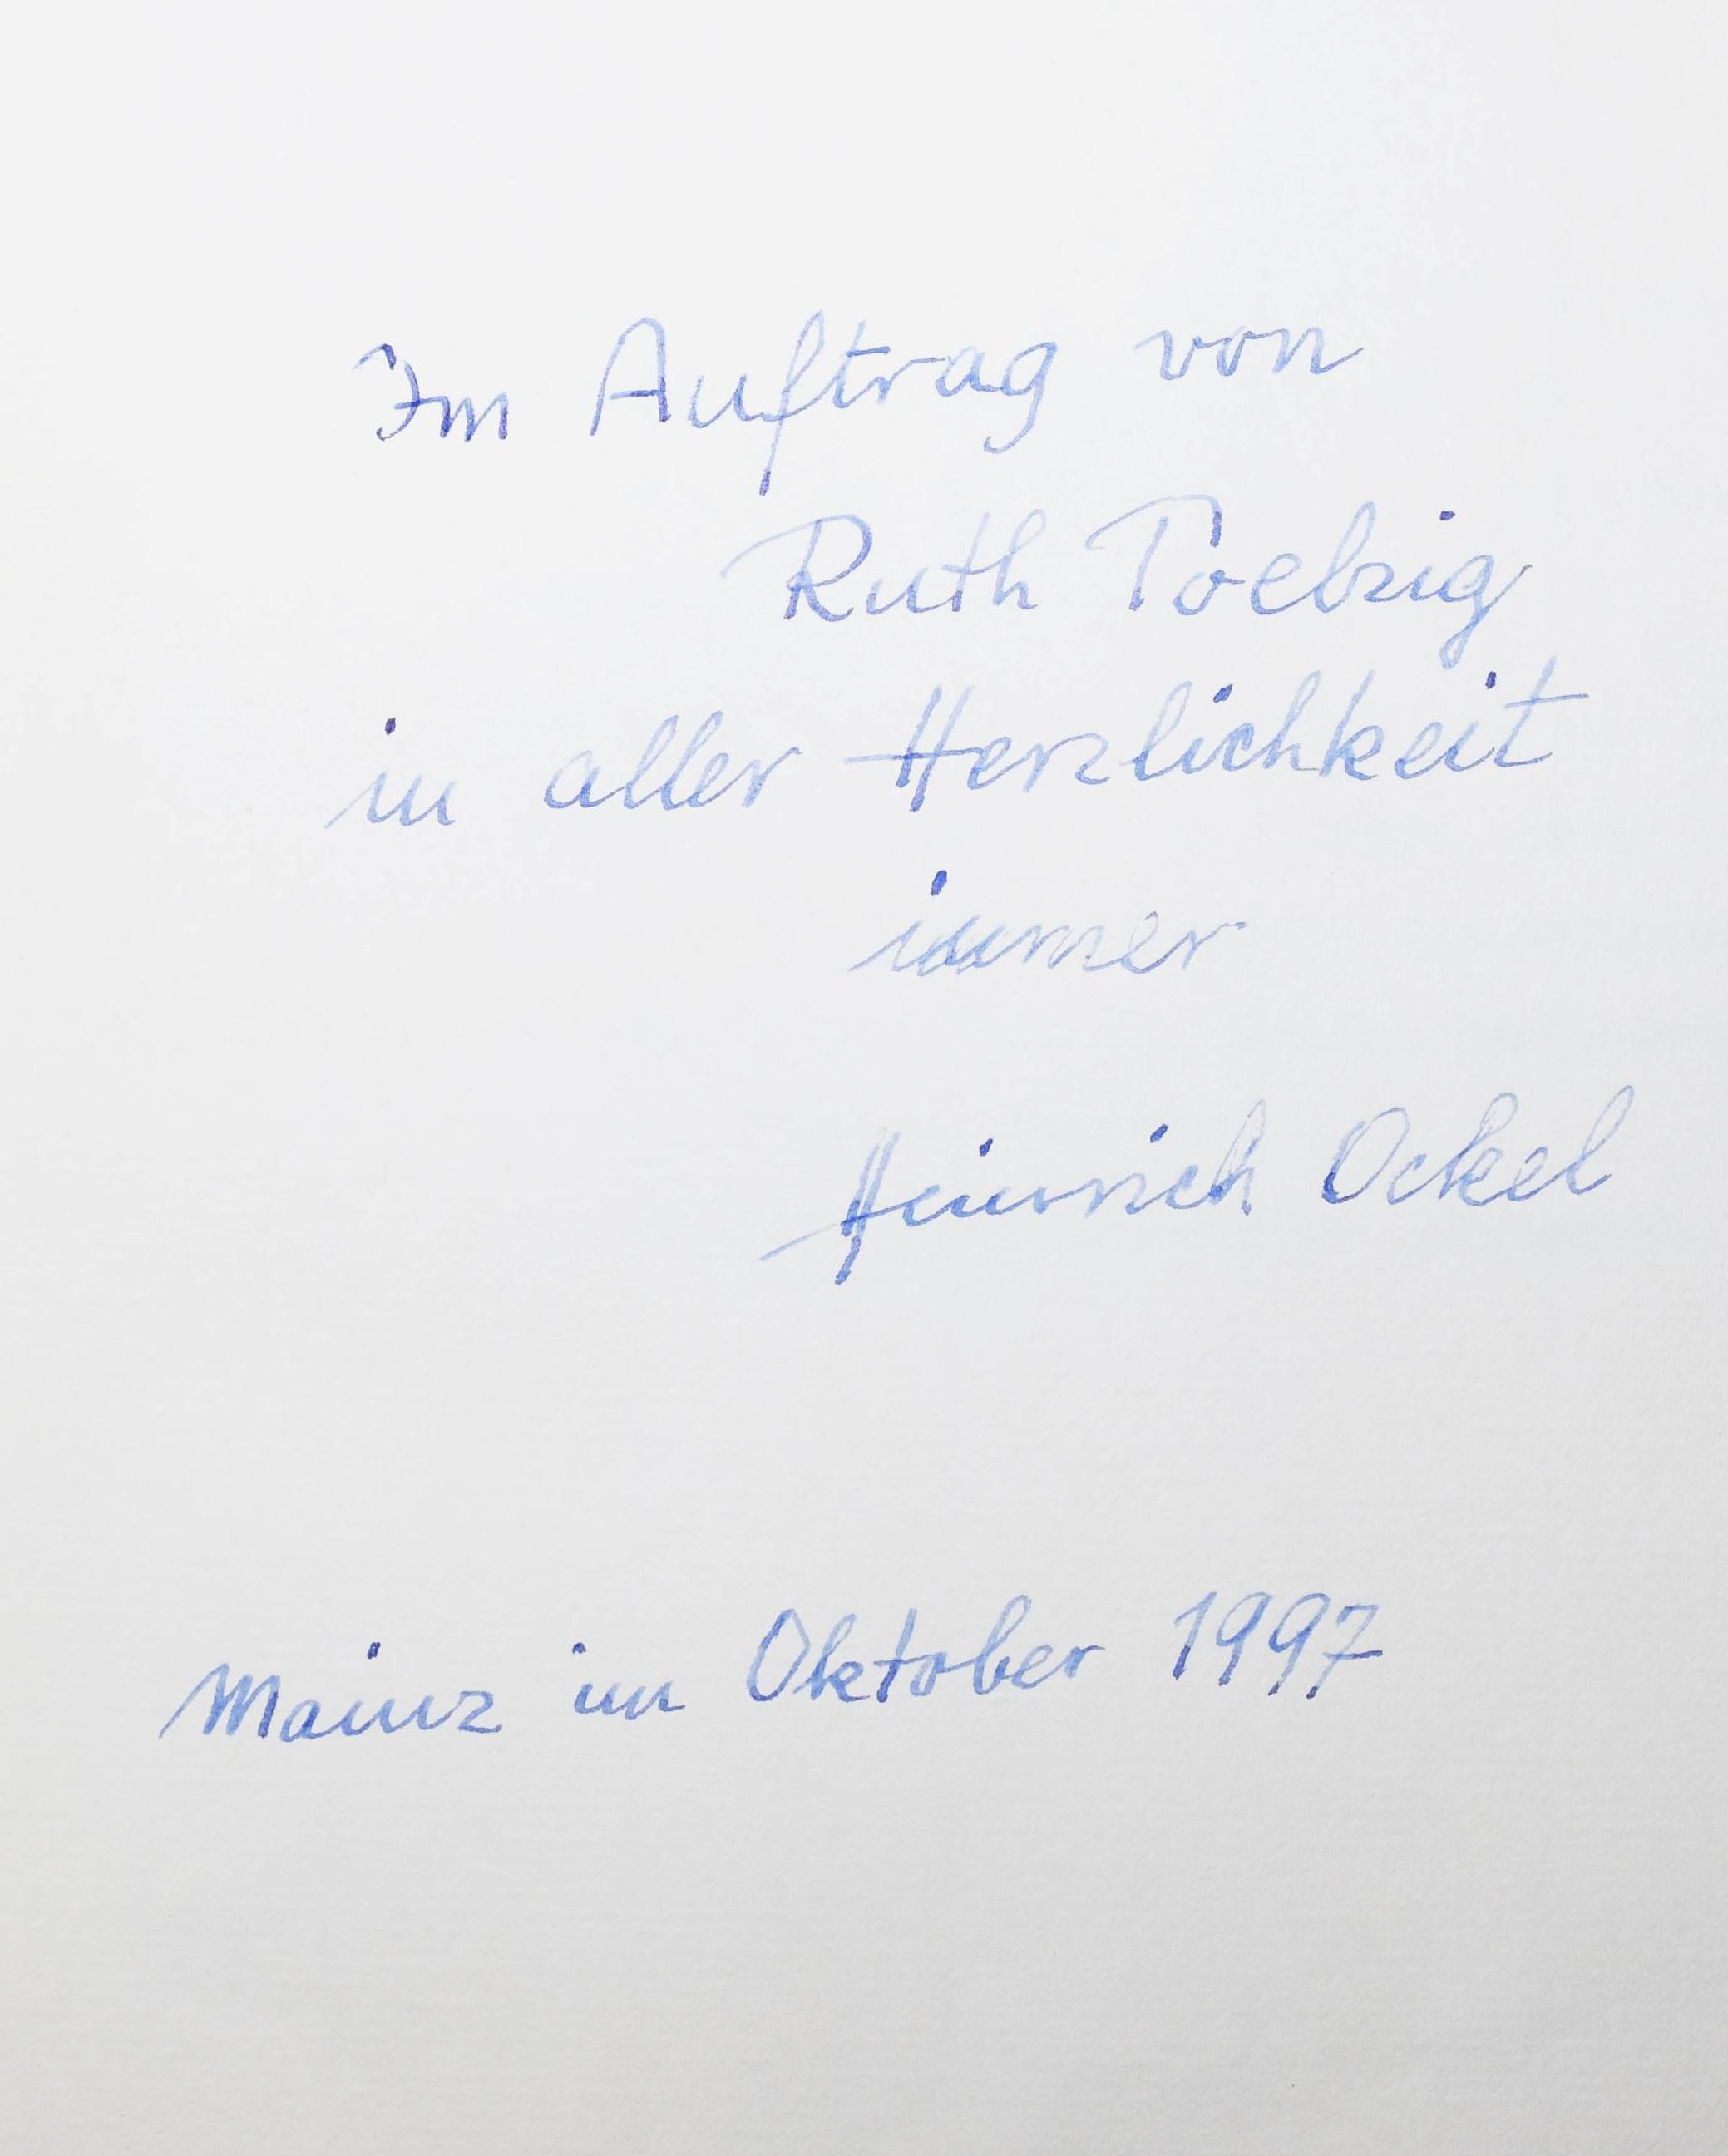 Im Auftrag von
Ruth
in aller Herzlichkeit
immer
Heinrich Ockel
Mainz im Oktober 1997